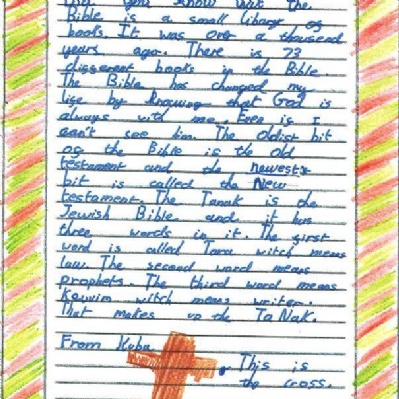 you know that the
Bible is a small library of
books. It was over a thousand
years ago. There is 73
different books in the Bible.
The Bible has changed my
life by knowing that God is
always with me. Even if I
can't see him. The oldist bit
of the Bible is the old
testament and the newest
bit is called the New
testament. The Tanak is the
Jewish Bible and it has
three words in it. The first
word is called Tora witch means
law. The second word means
prophets. The third word means
witch means writer.
That makes up the TaNak.
From Kuba
This is
the cross.